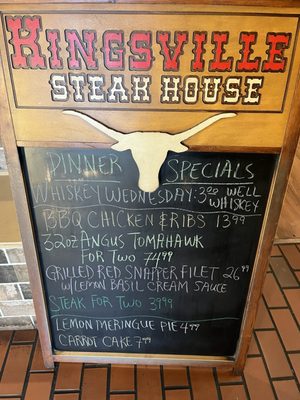 KINGSVILLE
STEAK HOUSE
DINNER SPECIALS
WHISKEY WEDNESDAY: 3.00 WELL
WHISKEY
BBQ CHICKEN & RIBS 13.99
32OZ ANGUS TOMAHAWK
FOR TWO 74.99
GRILLED RED SNAPPER FILET 26.99
W/ LEMON BASIL CREAM SAUCE
STEAK FOR TWO 39.99
LEMON MERINGUE PIE 4.99
CARROT CAKE 7.99